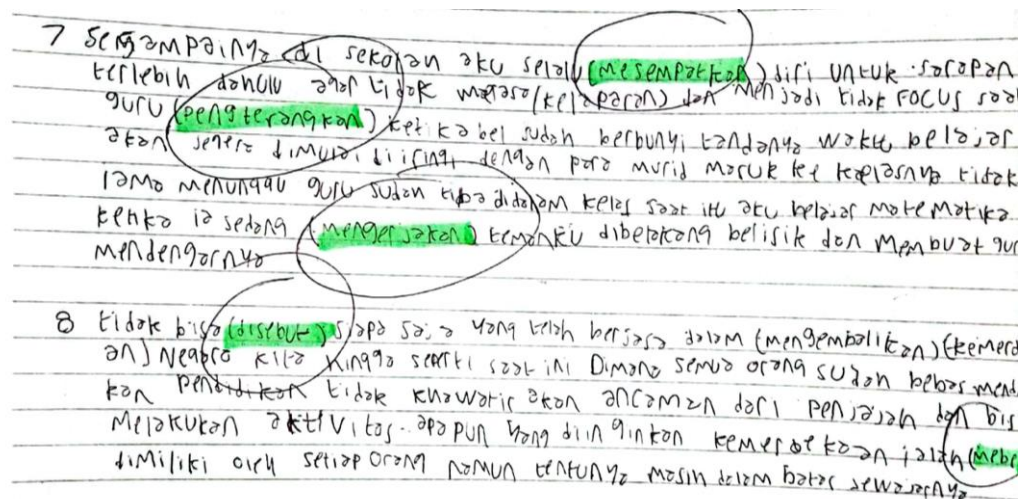 7 Sesampainya di sekolah aku selalu (mesempatkan) diri untuk sarapan
terlebih dahulu agar tidak merasa (kelaparan) dan menjadi tidak FOCUS saat
guru (pengterangkan) ketika bel sudah berbunyi tandanya waktu belajar
akan segera dimulai diiringi dengan para murid masuk ke kelasnya tidak
lama menunggu guru sudah tiba didalam kelas saat itu aku belajar matematika
ketika ia sedang (mengerjakan) temanku dibelakang belisik dan membuat gur
mendengarnya
8 tidak bisa (disebut) siapa saja yang telah berjasa dalam (mengembalikan) (kemerd
an) Negara kita hingga seperti saat ini Dimana semua orang sudah bebas mend
kan pendidikan tidak khawatir akan ancaman dari penjajah dan bis
Melakukan aktivitas apapun yang diinginkan kemerdekaan ialah (mebe
dimiliki oleh setiap orang namun tentunya masih dalam batas sewajarnya